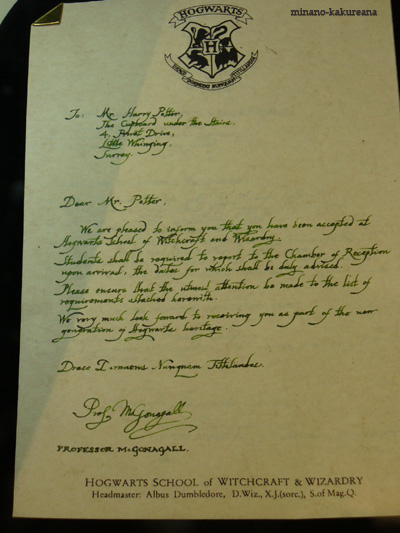 minano-kakureana
HOGWARTS
DRACO DORMIENS NUNQUAM TITILLANDUS
To: Mr. Harry Potter,
The Cupboard under the Stairs,
4, Privet Drive,
Little Whinging,
Surrey.
Dear Mr. Potter,
We are pleased to inform you that you have been accepted at
Hogwarts School of Witchcraft and Wizardry.
Students shall be required to report to the Chamber of Reception
upon arrival, the dates for which shall be duly advised.
Please ensure that the utmost attention be made to the list of
requirements attached herewith.
We very much look forward to receiving you as part of the new
generation of Hogwarts heritage.
Draco Dormiens Nunquam Titillandus.
Prof. McGonagall
PROFESSOR McGONAGALL.
HOGWARTS SCHOOL OF WITCHCRAFT & WIZARDRY
Headmaster: Albus Dumbledore, D.Wiz., X.J.(sorc.), S.of Mag.Q.